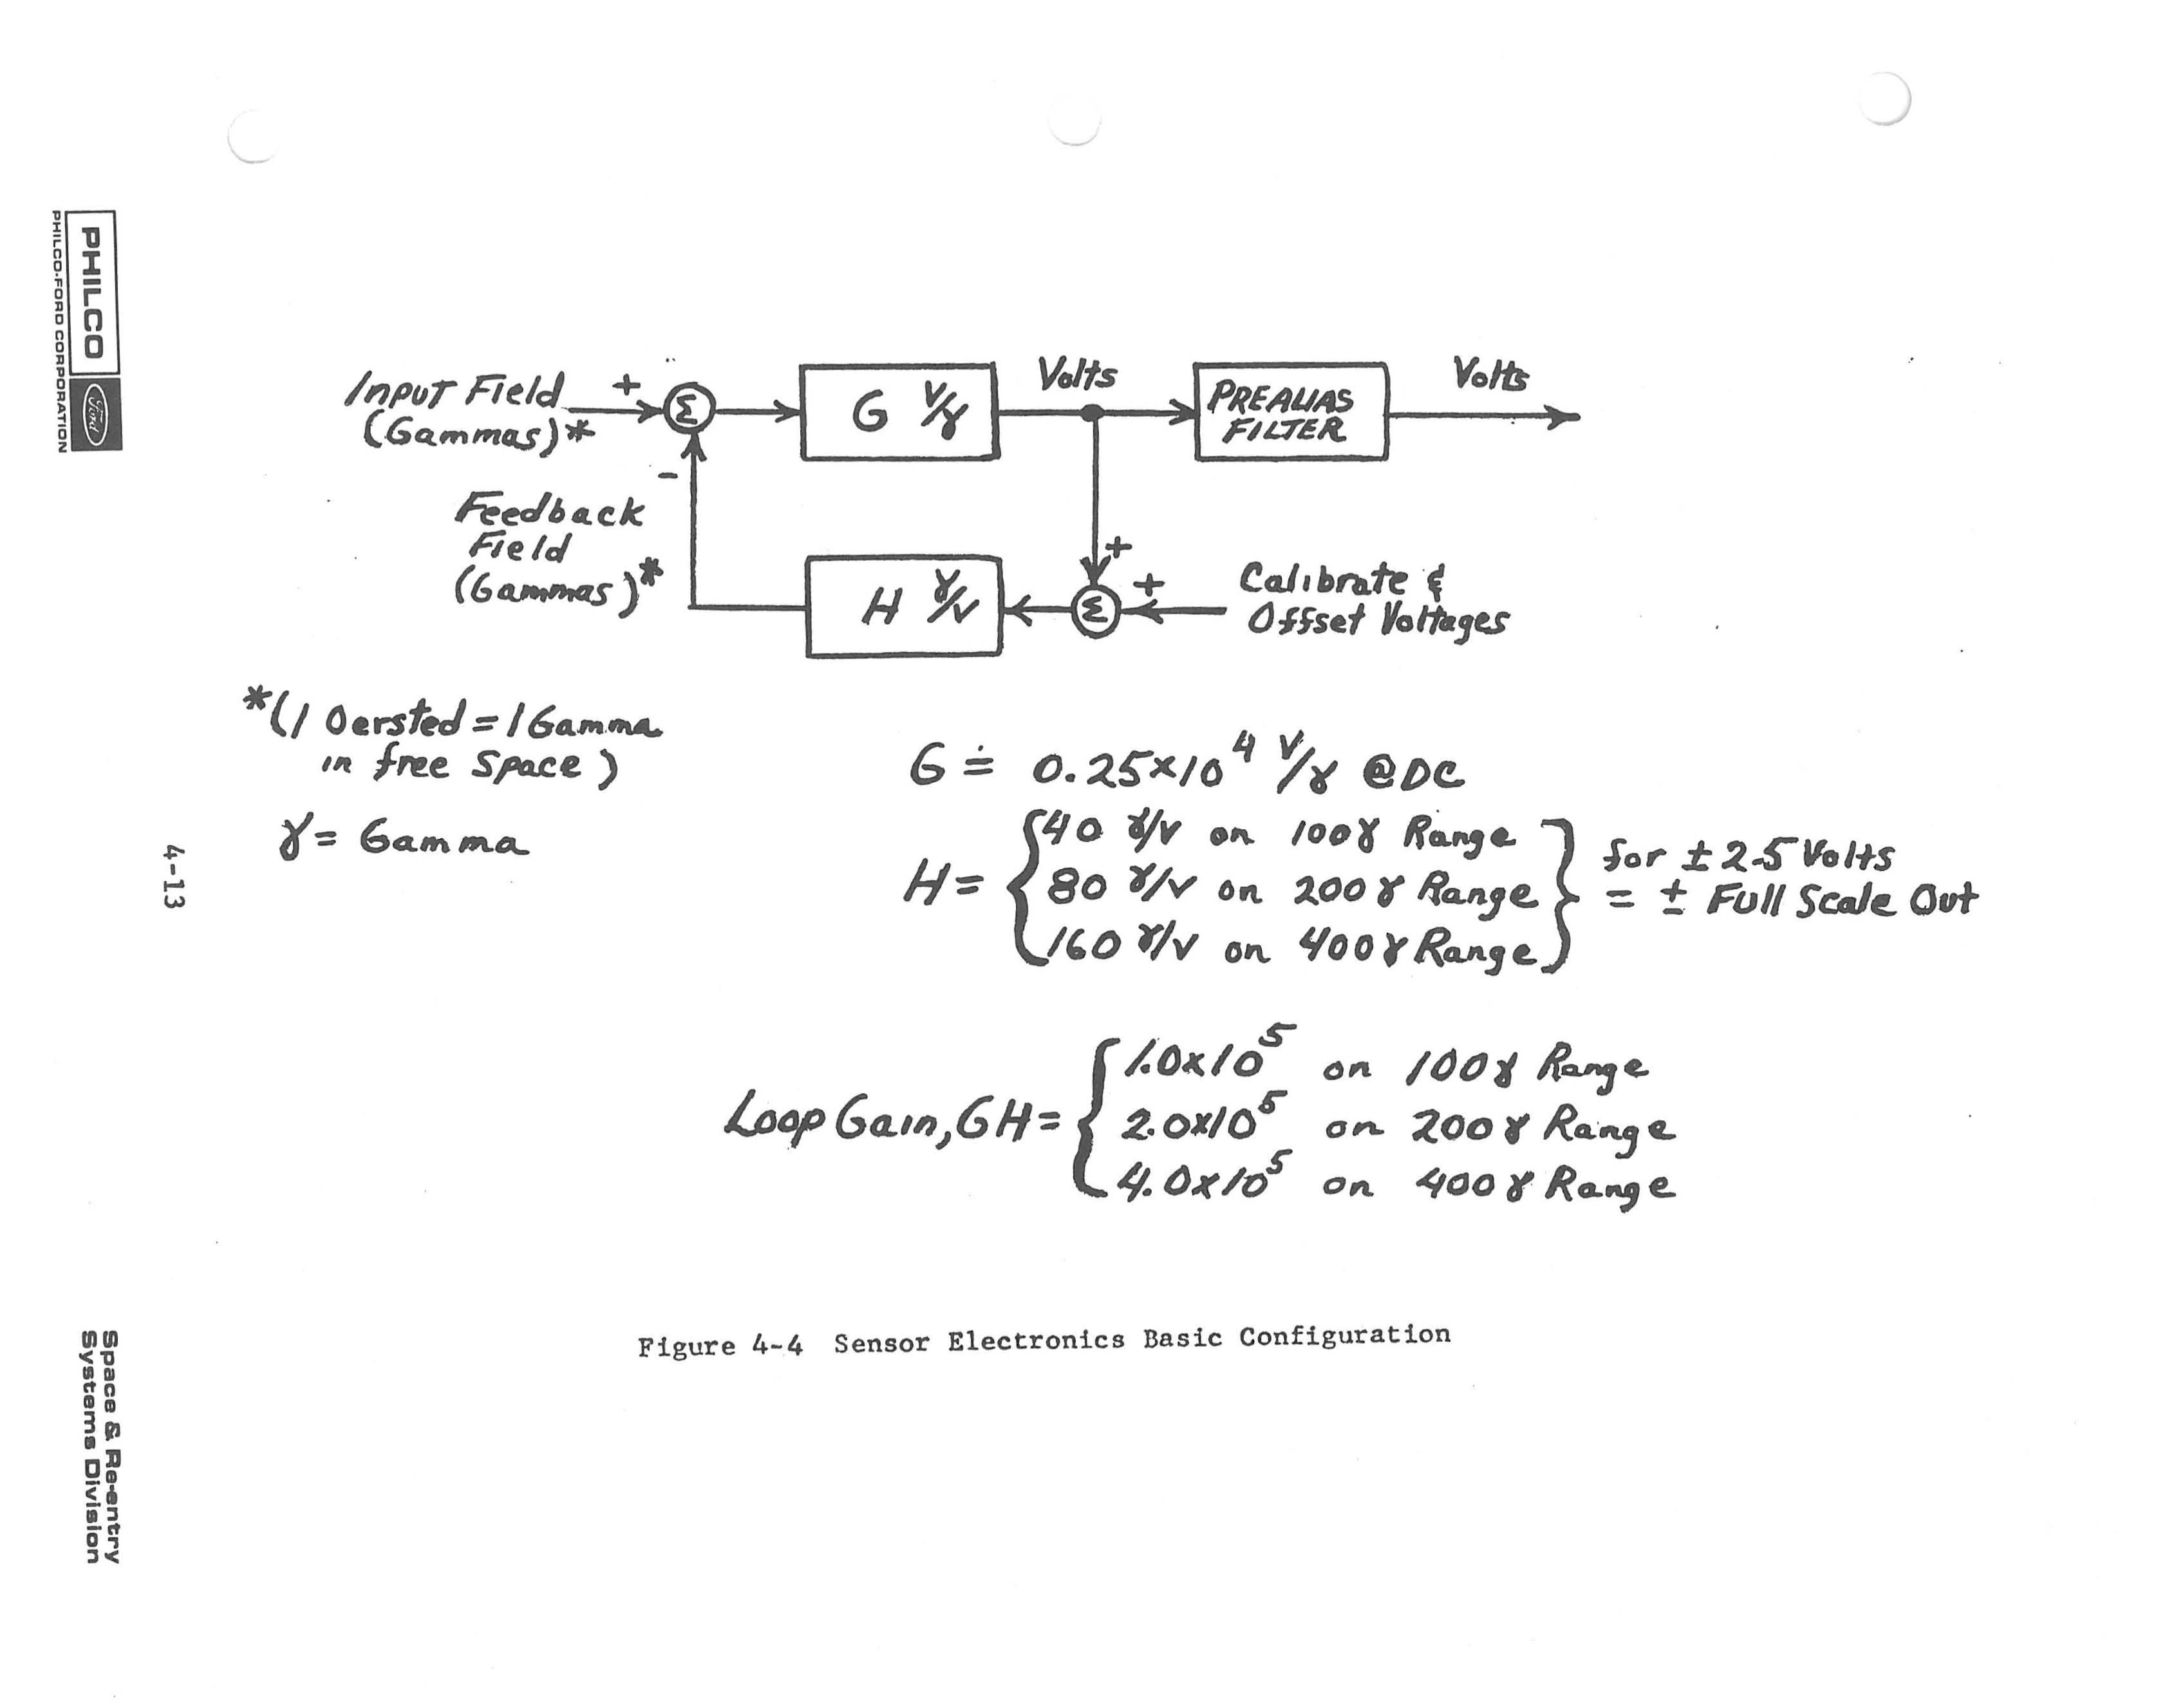 PHILCO
Ford
PHILCO-FORD CORPORATION
Input Field
(Gammas)*
+
Σ
-
G V/γ
Volts
PREALIAS
FILTER
Volts
Feedback
Field
(Gammas)*
H γ/v
+
Σ
+
Calibrate &
Offset Voltages
*(1 Oersted = 1 Gamma
in free Space)
γ = Gamma
G ≐ 0.25×10⁴ V/γ @DC
H = { 40 γ/v on 100γ Range
80 γ/v on 200γ Range
160 γ/v on 400γ Range }
for ± 2.5 Volts
= ± Full Scale Out
Loop Gain, GH = { 1.0×10⁵ on 100γ Range
2.0×10⁵ on 200γ Range
4.0×10⁵ on 400γ Range
4-13
Figure 4-4 Sensor Electronics Basic Configuration
Space & Re-entry
Systems Division